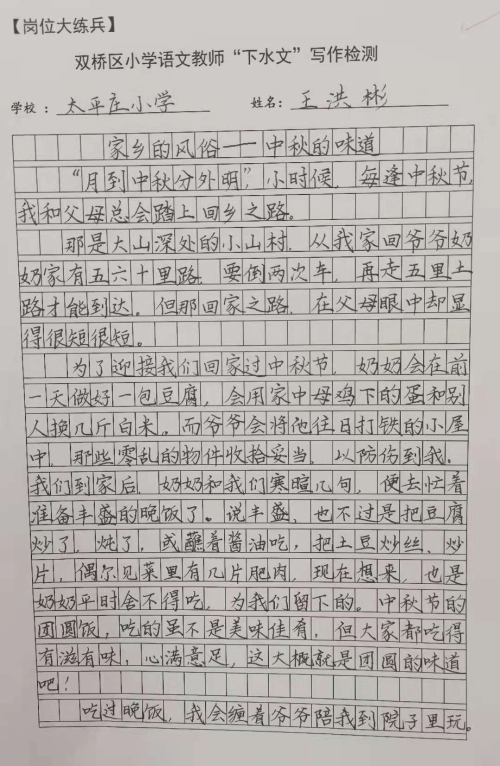 【岗位大练兵】
双桥区小学语文教师“下水文”写作检测
学校：太平庄小学 姓名：王洪彬
家乡的风俗——中秋的味道
“月到中秋分外明”，小时候，每逢中秋节，
我和父母总会踏上回乡之路。
那是大山深处的小山村，从我家回爷爷奶
奶家有五六十里路，要倒两次车，再走五里土
路才能到达。但那回家之路，在父母眼中却显
得很短很短。
为了迎接我们回家过中秋节，奶奶会在前
一天做好一包豆腐，会用家中母鸡下的蛋和别
人换几斤白米。而爷爷会将他往日打铁的小屋
中，那些零乱的物件收拾妥当，以防伤到我。
我们到家后，奶奶和我们寒暄几句，便去忙着
准备丰盛的晚饭了。说丰盛，也不过是把豆腐
炒了，炖了，或蘸着酱油吃，把土豆炒丝、炒
片，偶尔见菜里有几片肥肉，现在想来，也是
奶奶平时舍不得吃，为我们留下的。中秋节的
团圆饭，吃的虽不是美味佳肴，但大家都吃得
有滋有味，心满意足，这大概就是团圆的味道
吧！
吃过晚饭，我会缠着爷爷陪我到院子里玩。